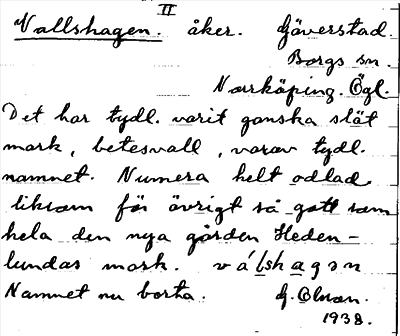 II
Vallshagen. åker. Gäverstad.
Borgs sn.
Norrköping. Ögl.
Det har tydl. varit ganska slät
mark, betesvall, varav tydl.
namnet. Numera helt odlad
liksom för övrigt så gott som
hela den nya gården Heden-
lundas mark. válshagən
Namnet nu borta. G. Olson.
1938.